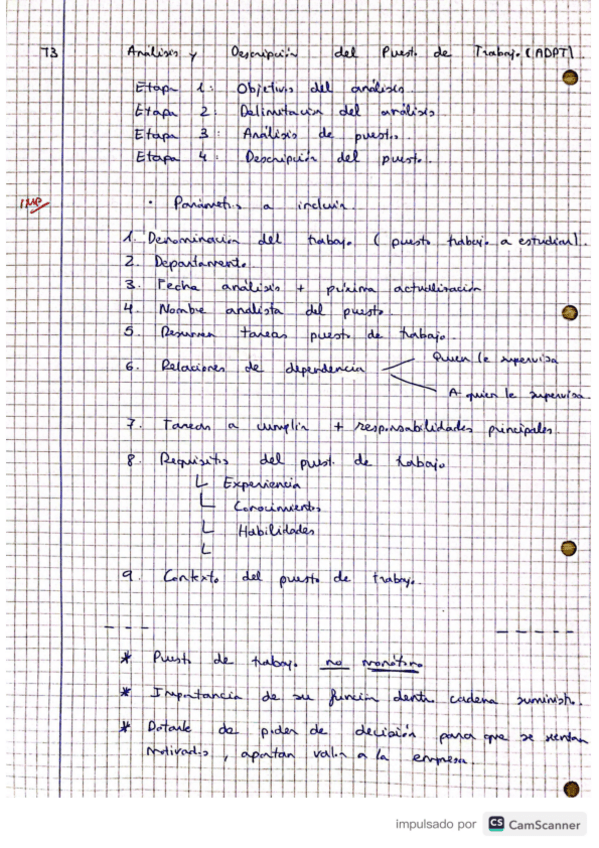 T3 Análisis y Descripción del Puesto de Trabajo (ADPT).
Etapa 1: Objetivos del análisis.
Etapa 2: Delimitación del análisis.
Etapa 3: Análisis de puestos.
Etapa 4: Descripción del puesto.
IMP
· Parámetros a incluir.
1. Denominación del trabajo (puesto trabajo a estudiar).
2. Departamento.
3. Fecha análisis + próxima actualización
4. Nombre analista del puesto.
5. Resumen tareas puesto de trabajo.
6. Relaciones de dependencia
Quien le supervisa
A quien le supervisa.
7. Tareas a cumplir + responsabilidades principales.
8. Requisitos del puesto de trabajo
Experiencia
Conocimientos
Habilidades
9. Contexto del puesto de trabajo.
* Puesto de trabajo no monótono
* Importancia de su función dentro cadena suministro.
* Dotarle de poder de decisión para que se sientan
motivados, aportan valor a la empresa.
impulsado por CS CamScanner